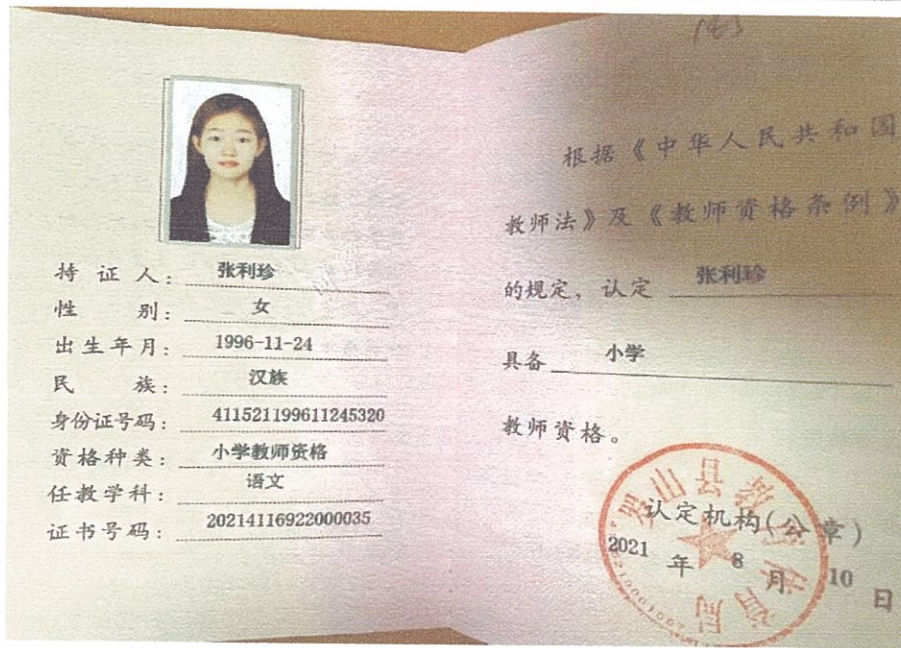 持证人：张利珍
性别：女
出生年月：1996-11-24
民族：汉族
身份证号码：411521199611245320
资格种类：小学教师资格
任教学科：语文
证书号码：20214116922000035
根据《中华人民共和国
教师法》及《教师资格条例》
的规定，认定 张利珍
具备 小学
教师资格。
罗山县教育体育局
认定机构(公章)
2021 年 8 月 10 日